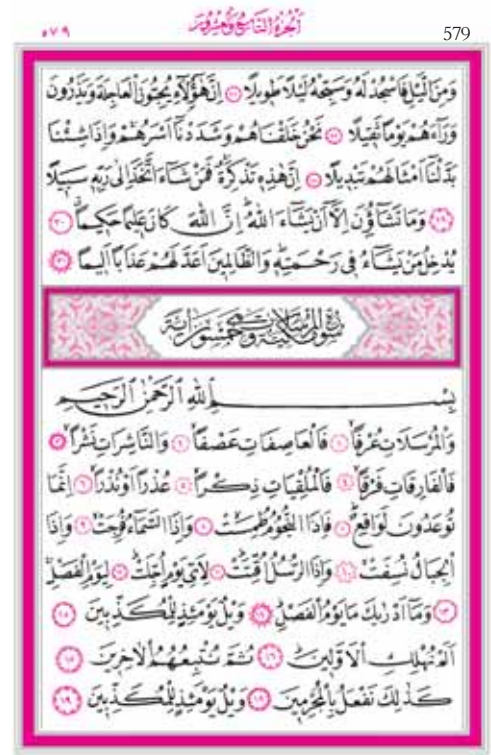 ٥٧٩ اَلْجُزْءُ التَّاسِعُ وَالْعِشْرُونَ 579
وَمِنَ الَّيْلِ فَاسْجُدْ لَهُ وَسَبِّحْهُ لَيْلًا طَوِيلًا ﴿٢٦﴾ اِنَّ هٰٓؤُلَاۤءِ يُحِبُّونَ الْعَاجِلَةَ وَيَذَرُونَ
وَرَاۤءَهُمْ يَوْمًا ثَقِيلًا ﴿٢٧﴾ نَحْنُ خَلَقْنَاهُمْ وَشَدَدْنَا اَسْرَهُمْ وَاِذَا شِئْنَا
بَدَّلْنَا اَمْثَالَهُمْ تَبْدِيلًا ﴿٢٨﴾ اِنَّ هٰذِهِ تَذْكِرَةٌ فَمَنْ شَاۤءَ اتَّخَذَ اِلٰى رَبِّهِ سَبِيلًا
﴿٢٩﴾ وَمَا تَشَاۤؤُنَ اِلَّا اَنْ يَشَاۤءَ اللّٰهُ اِنَّ اللّٰهَ كَانَ عَلِيمًا حَكِيمًا ﴿٣٠﴾
يُدْخِلُ مَنْ يَشَاۤءُ فِى رَحْمَتِهِ وَالظَّالِمِينَ اَعَدَّ لَهُمْ عَذَابًا اَلِيمًا ﴿٣١﴾
سُورَةُ الْمُرْسَلَاتِ مَكِّيَّةٌ وَهِىَ خَمْسُونَ اٰيَةً
بِسْمِ اللّٰهِ الرَّحْمٰنِ الرَّحِيمِ
وَالْمُرْسَلَاتِ عُرْفًا ﴿١﴾ فَالْعَاصِفَاتِ عَصْفًا ﴿٢﴾ وَالنَّاشِرَاتِ نَشْرًا ﴿٣﴾
فَالْفَارِقَاتِ فَرْقًا ﴿٤﴾ فَالْمُلْقِيَاتِ ذِكْرًا ﴿٥﴾ عُذْرًا اَوْ نُذْرًا ﴿٦﴾ اِنَّمَا
تُوعَدُونَ لَوَاقِعٌ ﴿٧﴾ فَاِذَا النُّجُومُ طُمِسَتْ ﴿٨﴾ وَاِذَا السَّمَاۤءُ فُرِجَتْ ﴿٩﴾ وَاِذَا
الْجِبَالُ نُسِفَتْ ﴿١٠﴾ وَاِذَا الرُّسُلُ اُقِّتَتْ ﴿١١﴾ لِاَىِّ يَوْمٍ اُجِّلَتْ ﴿١٢﴾ لِيَوْمِ الْفَصْلِ
﴿١٣﴾ وَمَا اَدْرٰيكَ مَا يَوْمُ الْفَصْلِ ﴿١٤﴾ وَيْلٌ يَوْمَئِذٍ لِلْمُكَذِّبِينَ ﴿١٥﴾
اَلَمْ نُهْلِكِ الْاَوَّلِينَ ﴿١٦﴾ ثُمَّ نُتْبِعُهُمُ الْاٰخِرِينَ ﴿١٧﴾
كَذٰلِكَ نَفْعَلُ بِالْمُجْرِمِينَ ﴿١٨﴾ وَيْلٌ يَوْمَئِذٍ لِلْمُكَذِّبِينَ ﴿١٩﴾